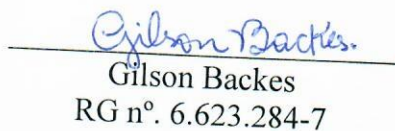 Gilson Backes.
Gilson Backes
RG nº. 6.623.284-7